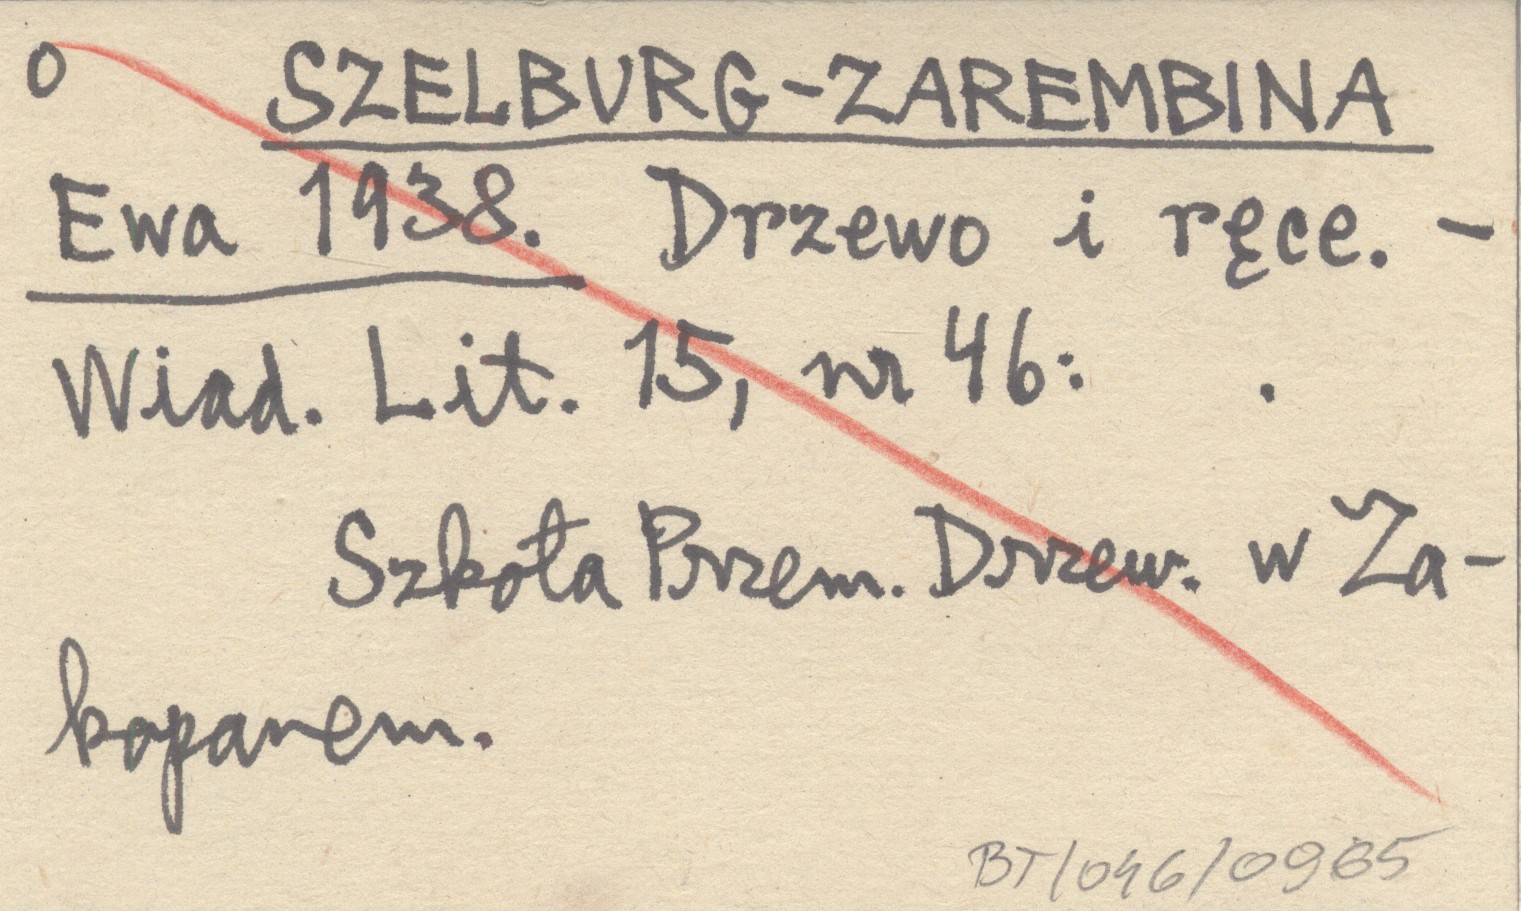 o SZELBURG-ZAREMBINA
Ewa 1938. Drzewo i ręce. -
Wiad. Lit. 15, nr 46: .
Szkoła Przem. Drzew. w Za-
kopanem.
BT/046/0965